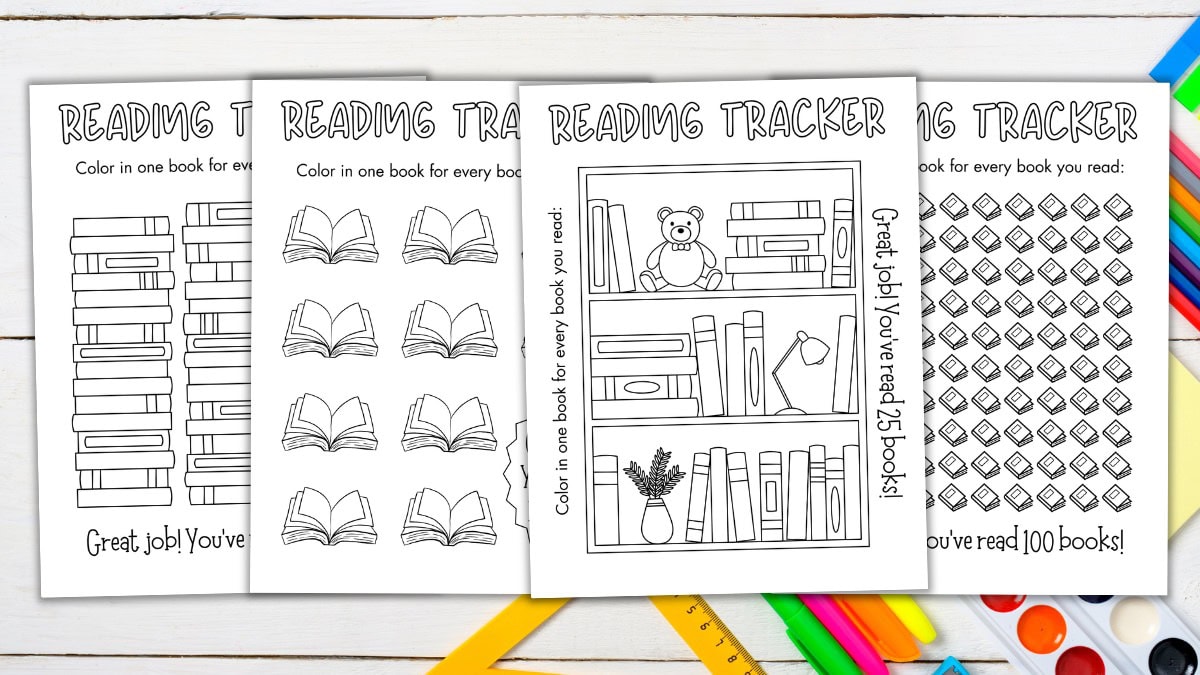 READING T
Color in one book for eve
Great job! You've
READING TRA
Color in one book for every boo
READING TRACKER
Color in one book for every book you read:
Great job! You've read 25 books!
NG TRACKER
book for every book you read:
ou've read 100 books!
5 6 7 8